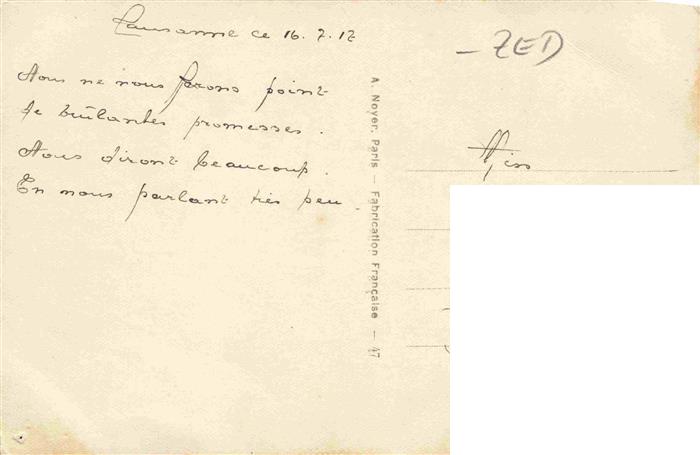 Lausanne ce 16.7.17
Nous ne nous ferons point
de brûlantes promesses.
Nous diront beaucoup.
En nous parlant très peu.
A. Noyer, Paris — Fabrication Française — 47
- ZED
Miss